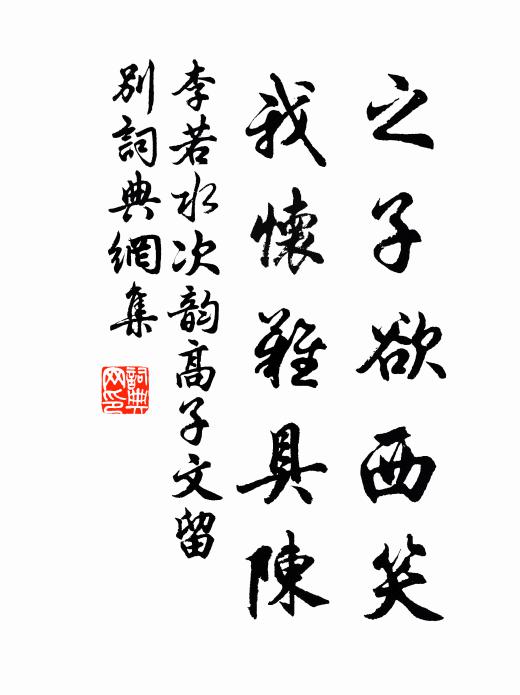 之子欲西笑
我懷難具陳
李若水次韵高子文留
別詞典網集
詞典
网印